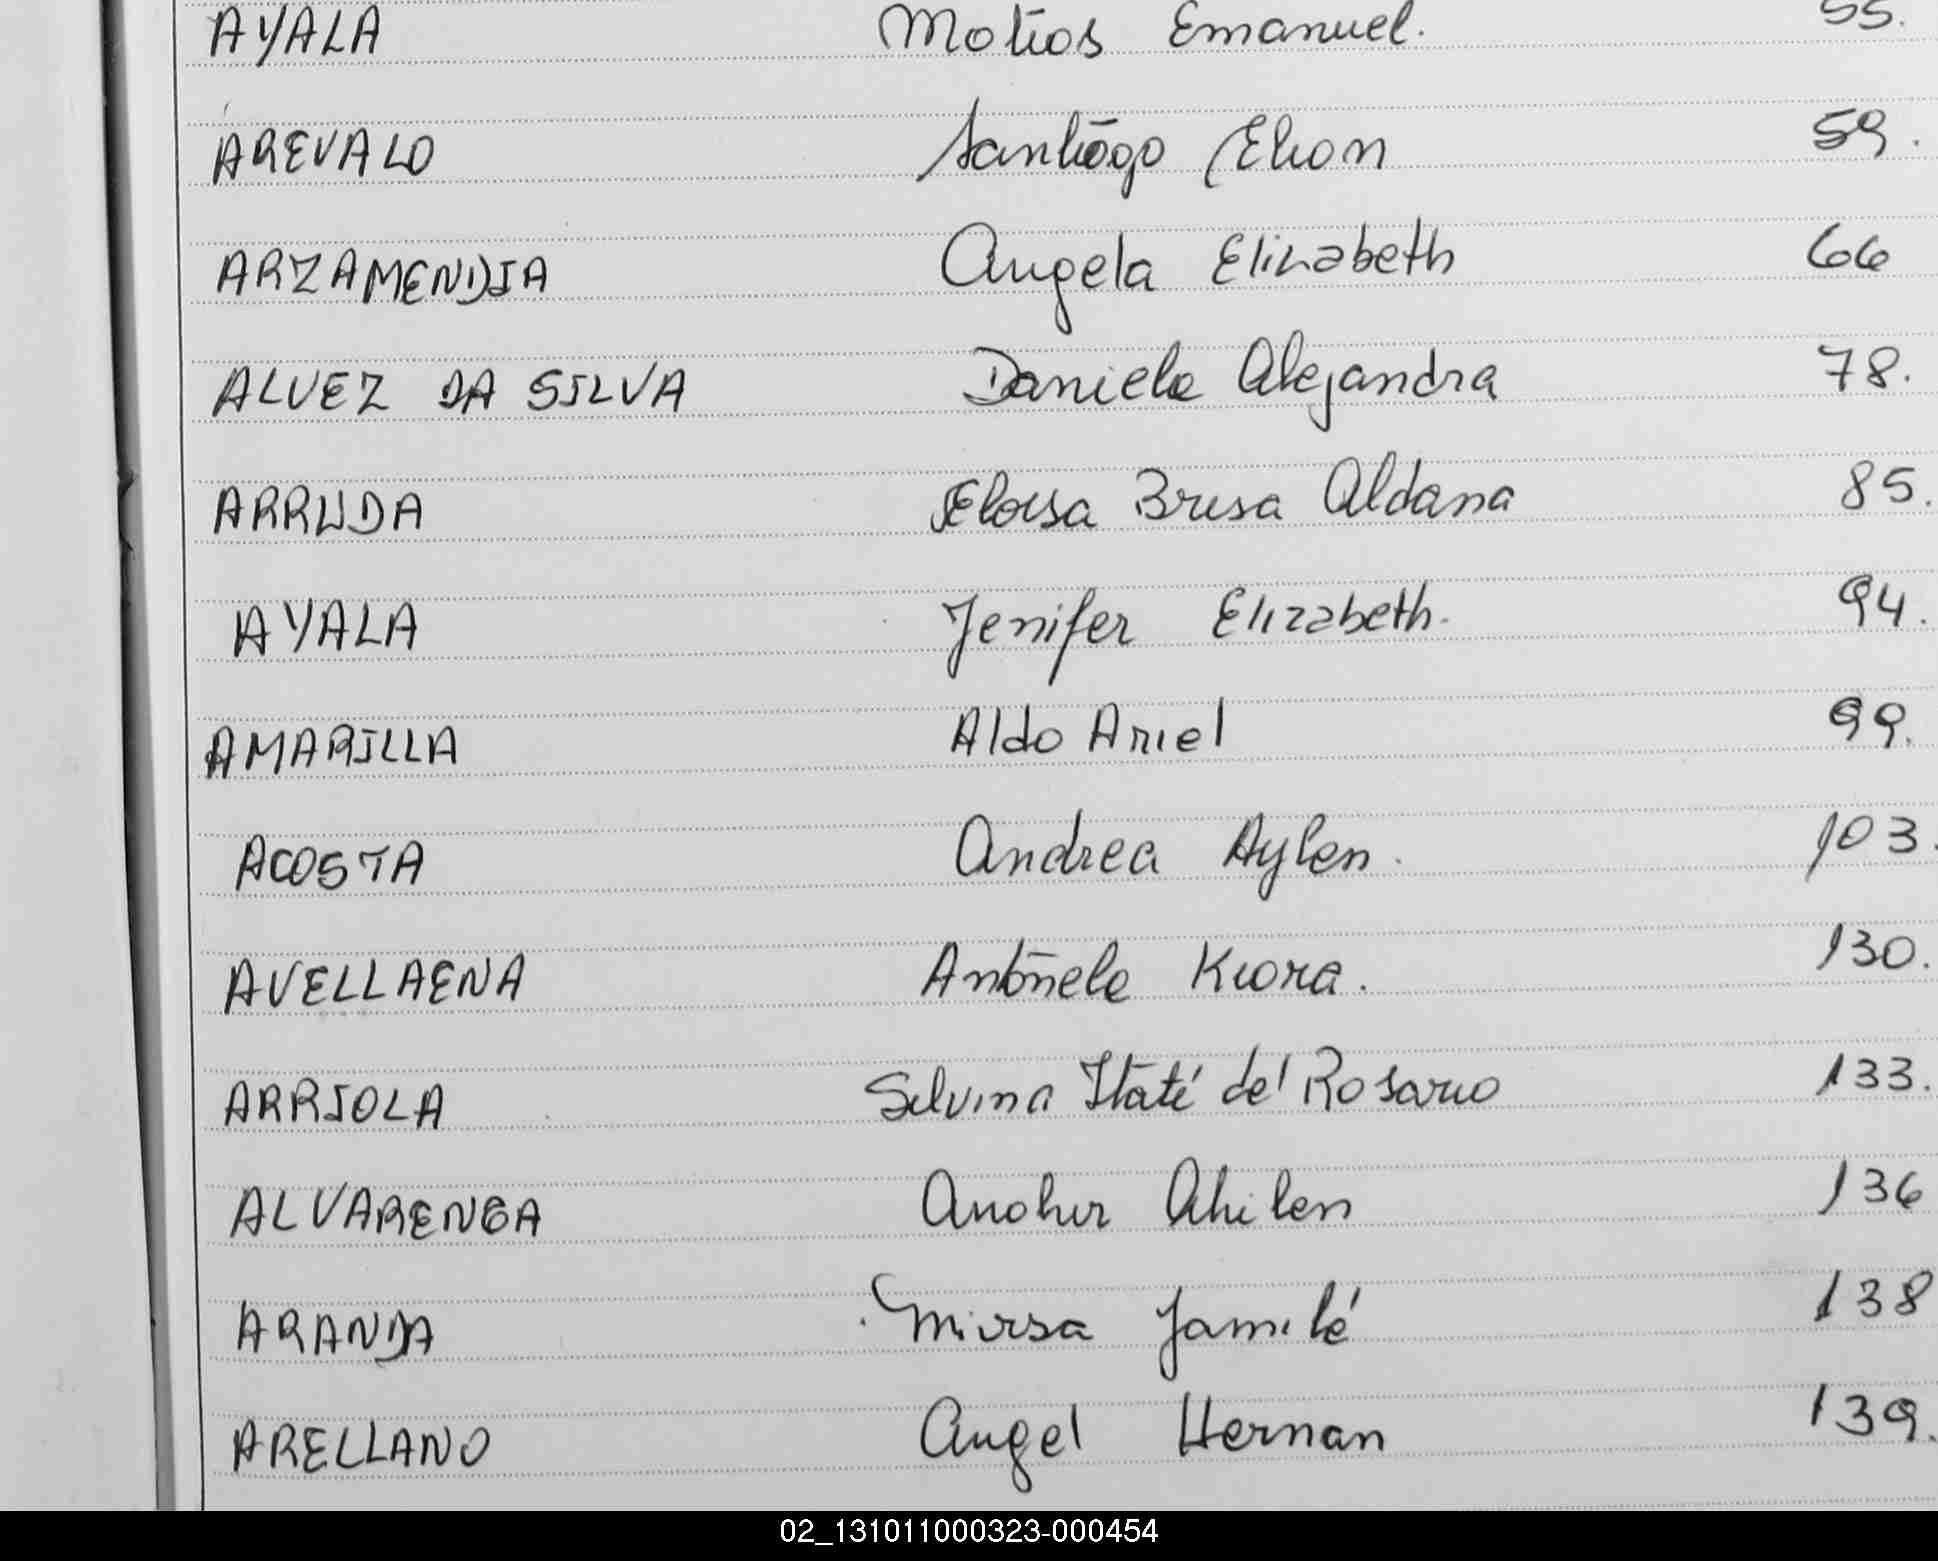 AYALA Matias Emanuel. 55.
AREVALO Santiago Elian 59.
ARZAMENDIA Angela Elizabeth 66
ALVEZ DA SILVA Daniela Alejandra 78.
ARRUDA Eloisa Brisa Aldana 85.
AYALA Jenifer Elizabeth. 94.
AMARILLA Aldo Ariel 99.
ACOSTA Andrea Aylen. 103.
AVELLAENA Antonela Kiora. 130.
ARRIOLA Silvina Itatí del Rosario 133.
ALVARENGA Ahilen 136
ARANDA Mirsa Jamilé 138
ARELLANO Angel Hernan 139.
02_131011000323-000454